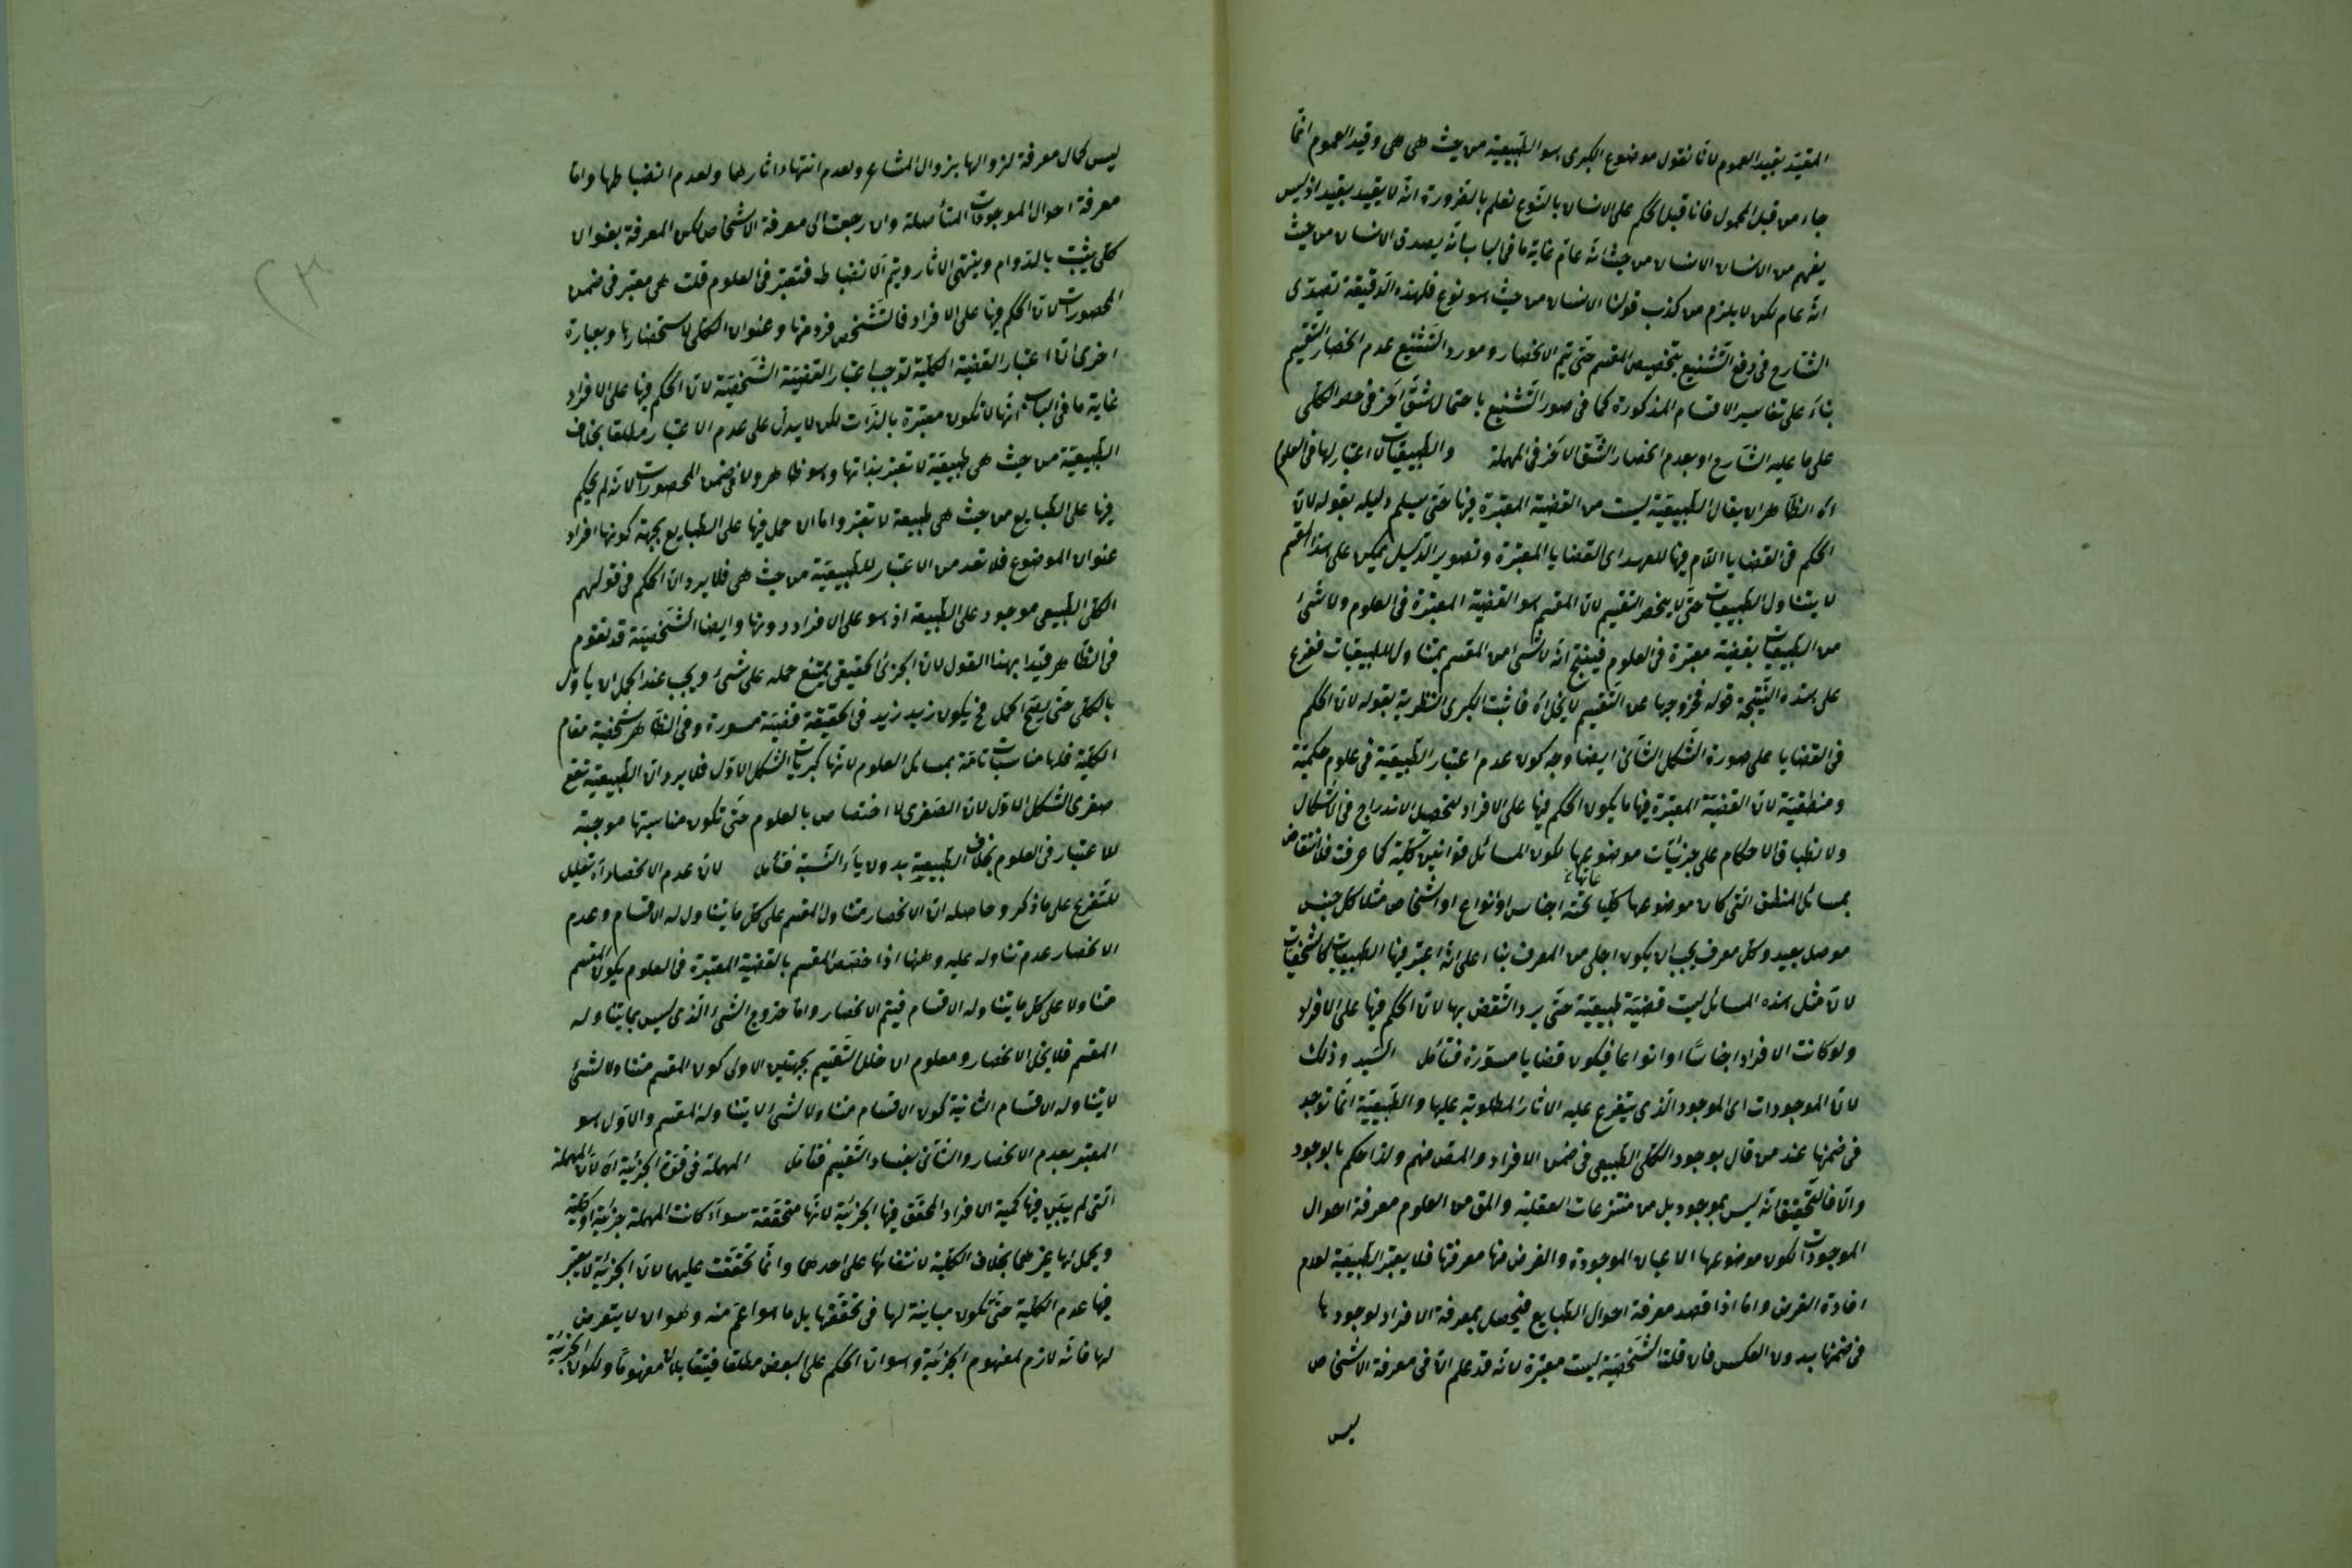 المقيد بقيد العموم لانا نقول موضوع الكبرى هو الطبيعية من حيث هى هى وقيد العموم انما
جاء من قبل المحمول فانا قبل الحكم على الانسان بالنوع نعلم بالضرورة انه لا يقيد بقيد اذ ليس
يفهم من الانسان الانسان من حيث انه عام غاية ما فى الباب انه يصدق الانسان من حيث
انه عام لكن لا يلزم من كذب قولنا الانسان من حيث هو نوع فلهذه الدقيقة تصدى
الشارح فى دفع التشنيع بتخصيص المقسم حتى يتم الانحصار ومورد التشنيع عدم انحصار التقسيم
بناء على تفاسير الاقسام المذكورة كما فى صور التشنيع باحتمال شق آخر فى حصر الكلى
على ما عليه الشارح او بعدم انحصار الشق الآخر فى المهملة والطبيعيات لا اعتبار لها فى العلوم
اه الظاهر ان يقال الطبيعية ليست من القضية المعتبرة فيها حتى يسلم دليله بقوله لان
الحكم فى القضايا اللام فيها للعهد اى القضايا المعتبرة وتصوير الدليل يمكن على هذا المقسم
لا يتناول الطبيعيات حتى لا ينحصر التقسيم لان المقسم هو القضية المعتبرة فى العلوم ولا شئ
من الطبيعيات بقضية معتبرة فى العلوم فينتج انه لا شئ من المقسم بمتناول للطبيعيات ففرع
على هذه النتيجة قوله فخروجها عن التقسيم لا يخل اه فاثبت الكبرى النظرية بقوله لان الحكم
فى القضايا على صورة الشكل الثانى ايضا وجه كون عدم اعتبار الطبيعية فى علوم حكمية
ومنطقية لان القضية المعتبرة فيها ما يكون الحكم فيها على الافراد لتحصل الاندراج فى الاشكال
ولانطباق الاحكام على جزئيات موضوعها لكون المسائل قوانين كلية كما عرفت فلا انتقاض
بمسائل المنطق التى كان موضوعها كليا تحته اجناس او انواع او اشخاص مثلا كل جنس
موصل بعيد وكل معرف يجب ان يكون اجلى من المعرف بناء على انه اعتبر فيها الطبيعيات كالشخصيات
لان مثل هذه المسائل ليست قضية طبيعية حتى يرد النقض بها لان الحكم فيها على الافراد
ولو كانت الافراد اجناسا او انواعا فيكون قضايا مسورة فتأمل السيد وذلك
لان الموجودات اى الموجود الذى يتفرع عليه الاثار المطلوبة عليها والطبيعية انما توجد
فى ضمنها عند من قال بوجود الكلى الطبيعى فى ضمن الافراد والمقص منهم ولذا حكم بالوجود
والا فالتحقيق انه ليس بموجود بل من منتزعات العقلية والمق من العلوم معرفة احوال
الموجودات لكون موضوعها الاعيان الموجودة والغرض منها معرفتها فلا يعتبر الطبيعية لعدم
افادة الغرض واما اذا قصد معرفة احوال الطبايع فيحصل بمعرفة الافراد لوجودها
فى ضمنها بدون العكس فان قلت الشخصية ليست معتبرة لانه قد علم ان فى معرفة الاشخاص
ليس
ليس كمال معرفة لزوالها بزوال المشاعر ولعدم انتهاء اثارها ولعدم انضباطها واما
معرفة احوال الموجودات المتأصلة وان رجعت الى معرفة الاشخاص لكن المعرفة بعنوان
كلى يثبت بالدوام وينتهى الاثار ويتم الانضباط فتعتبر فى العلوم قلت هى معتبر فى ضمن
المحصورات لان الحكم فيها على الافراد فالتشخص فرد منها وعنوان الكلى لاستحضارها وبعبارة
اخرى ان اعتبار القضية الكلية توجب اعتبار القضية الشخصية لان الحكم فيها على الافراد
غاية ما فى الباب انها لا تكون معتبرة بالذات لكن لا يدل على عدم الاعتبار مطلقا بخلاف
الطبيعية من حيث هى طبيعية لا تعتبر بذاتها وهو ظاهر ولا فى ضمن المحصورات لانه لم يحكم
فيها على الطبايع من حيث هى طبيعة لا تعتبر واما ان حمل فيها على الطبايع بجهة كونها افراد
عنوان الموضوع فلا تعد من الاعتبار للطبيعية من حيث هى فلا يرد ان الحكم فى قولهم
الكلى الطبيعى موجود على الطبيعة اذ هو على الافراد دونها وايضا الشخصية قد تقوم
فى الظاهر قيد بهذا القول لان الجزئى الحقيقى يمتنع حمله على شئ ويجب عند الحمل ان يأول
بالكلى حتى يصح الحمل فح يكون زيد زيد فى الحقيقة قضية مسورة وفى الظاهر شخصية مقام
الكلية فلها مناسبات تامة بمسائل العلوم لانها كبريات الشكل الاول فلا يرد ان الطبيعية تقع
صغرى الشكل الاول لان الصغرى لا اختصاص بالعلوم حتى تكون مناسبتها موجبة
للاعتبار فى العلوم بخلاف الطبيعية بدون ياء النسبة فتأمل لان عدم الانحصار اه تعليل
للتفرع على ما ذكر وحاصله ان الانحصار متناول المقسم على كل ما يتناول له الاقسام وعدم
الانحصار عدم تناوله عليه وههنا اذا خصص المقسم بالقضية المعتبرة فى العلوم يكون المقسم
متناولا على كل ما يتناوله الاقسام فيتم الانحصار واما خروج الشئ الذى ليس بما يتناوله
المقسم فلا يخل الانحصار ومعلوم ان خلل التقسيم بجهتين الاولى كون المقسم متناولا لشئ
لا يتناوله الاقسام الثانية كون الاقسام متناولا لشئ لا يتناوله المقسم والاول هو
المعتبر بعدم الانحصار والثانى بفساد التقسيم فتأمل المهملة فى قوة الجزئية اه لان المهملة
التى لم يبين فيها كمية الافراد المحقق فيها الجزئية لانها متحققة سواء كانت المهملة جزئية او كلية
بخلاف الكلية لانتفائها على احدهما وانما تحققت عليهما لان الجزئية لا يعتبر
فيها عدم الكلية حتى تكون مباينة لها فى تحققها بل ما هو اعم منه وهو ان لا يتعرض
لها فانه لازم لمفهوم الجزئية وهو ان الحكم على البعض مطلقا فيتقابلان مفهوما ولكون الجزئية